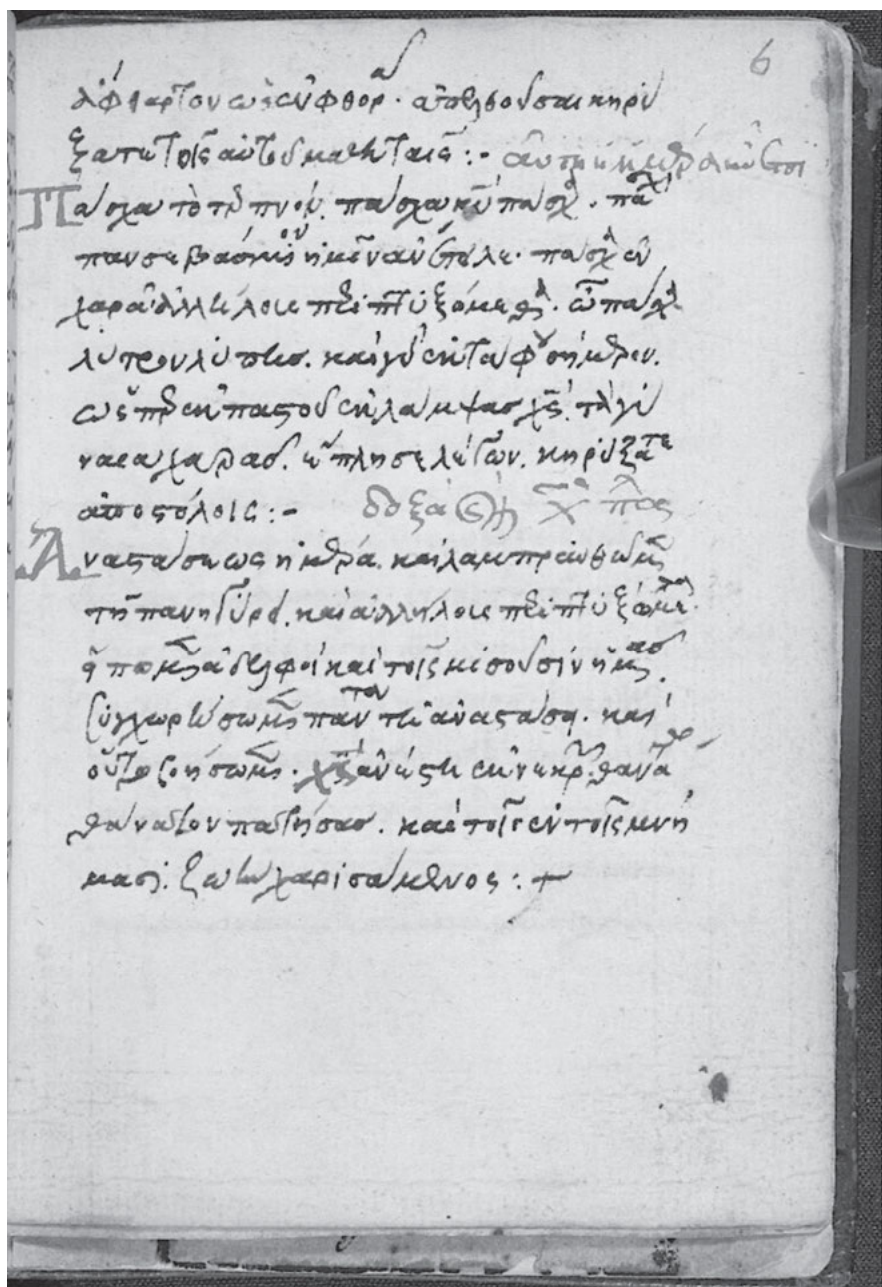 ἄφθαρτον ὡς ἐν φθορᾷ. ἀπελθοῦσαι κηρύ
ξατε τοῖς αὐτοῦ μαθηταῖς :-
Πάσχα τὸ τερπνόν. πάσχα κυ πάσχ. πάσχ
πανσεβάσμιον ἡμῖν ἀνέτειλε. πάσχα ἐν
χαρᾷ ἀλλήλοις περιπτυξόμεθα. ὦ πάσχα
λύτρον λύπης. καὶ γὰρ ἐκ τάφου σήμερον.
ὡσπερ ἐκ παστοῦ ἐκλάμψας χς. τὰ γύ
ναια χαρᾶς. ἔπλησε λέγων. κηρύξατε
ἀποστόλοις :- δόξα
Ἀναστάσεως ἡμέρα. καὶ λαμπρυνθῶμεν
τῇ πανηγύρει. καὶ ἀλλήλοις περιπτυξώμεθα.
εἴπωμεν ἀδελφοί καὶ τοῖς μισοῦσιν ἡμᾶς.
συγχωρήσωμεν πάντα τῇ ἀναστάσει. καὶ
οὕτω βοήσωμεν. χς ἀνέστη ἐκ νεκρῶν. θανάτῳ
θάνατον πατήσας. καὶ τοῖς ἐν τοῖς μνή
μασι. ζωὴν χαρισάμενος : +